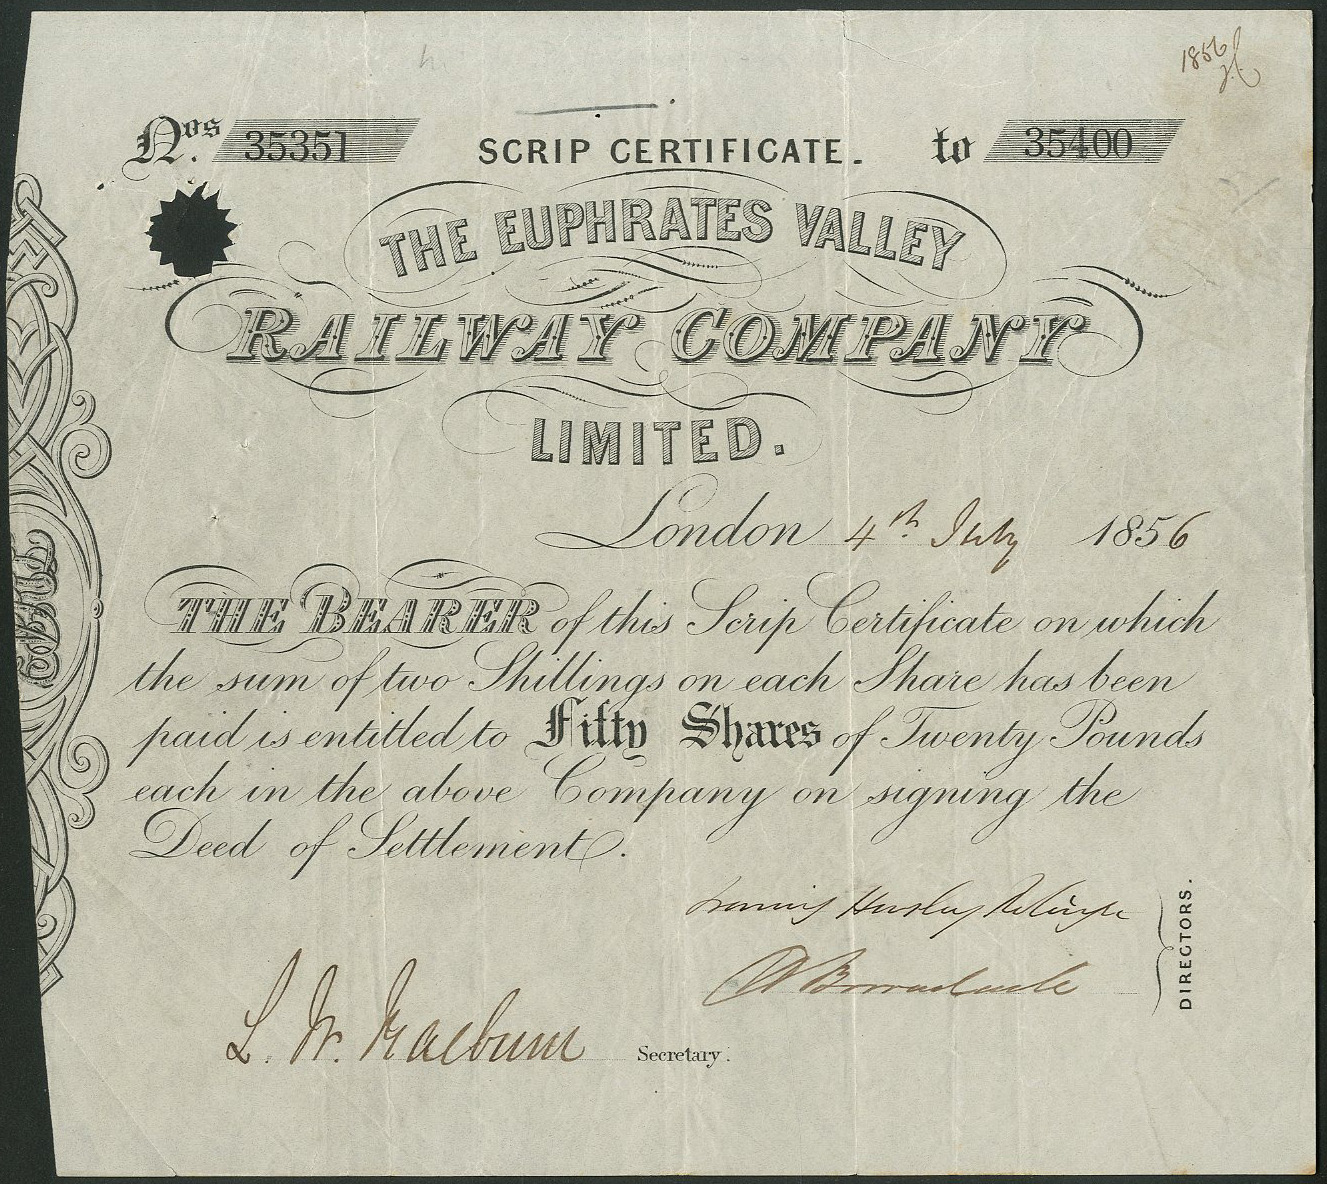 1856
Nos 35351 SCRIP CERTIFICATE. to 35400
THE EUPHRATES VALLEY
RAILWAY COMPANY
LIMITED.
London 4th July 1856
THE BEARER of this Scrip Certificate on which
the sum of two Shillings on each Share has been
paid is entitled to Fifty Shares of Twenty Pounds
each in the above Company on signing the
Deed of Settlement.
DIRECTORS.
L. W. Raeburn Secretary.